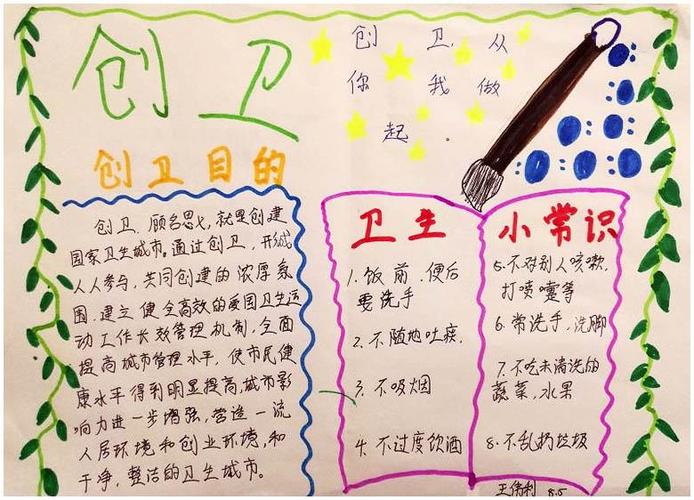 创卫
创卫,从
你我做
起.
创卫目的
创卫.顾名思义,就是创建
国家卫生城市。通过创卫,形成
人人参与,共同创建的浓厚氛
围.建立健全高效的爱国卫生运
动工作长效管理机制,全面
提高城市管理水平,使市民健
康水平得到明显提高,城市影
响力进一步增强,营造一流
人居环境和创业环境,和
干净,整洁的卫生城市。
卫生
小常识
1.饭前.便后
要洗手
2.不随地吐痰.
3.不吸烟
4.不过度饮酒
5.不对别人咳嗽,
打喷嚏等
6.常洗手,洗脚
7.不吃未清洗的
蔬菜,水果
8.不乱扔垃圾
8.5